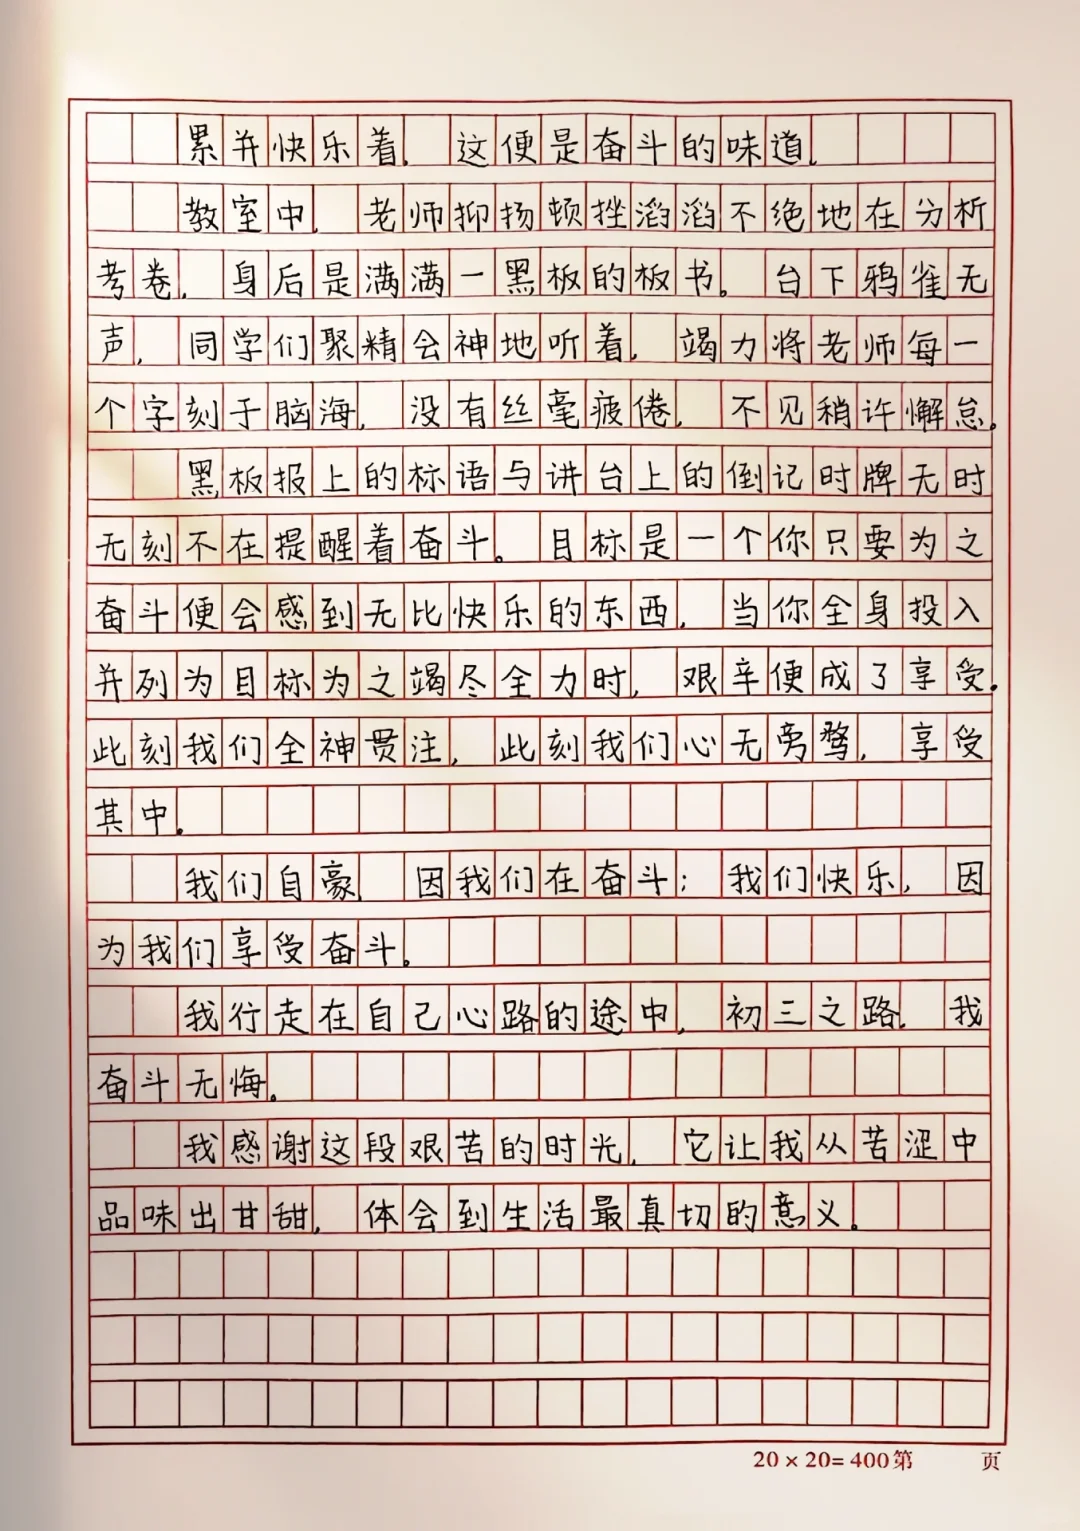 累并快乐着，这便是奋斗的味道，
教室中，老师抑扬顿挫滔滔不绝地在分析
考卷，身后是满满一黑板的板书。台下鸦雀无
声，同学们聚精会神地听着，竭力将老师每一
个字刻于脑海，没有丝毫疲倦，不见稍许懈怠。
黑板报上的标语与讲台上的倒记时牌无时
无刻不在提醒着奋斗。目标是一个你只要为之
奋斗便会感到无比快乐的东西，当你全身投入
并列为目标为之竭尽全力时，艰辛便成了享受。
此刻我们全神贯注，此刻我们心无旁骛，享受
其中。
我们自豪，因我们在奋斗；我们快乐，因
为我们享受奋斗。
我行走在自己心路的途中，初三之路，我
奋斗无悔。
我感谢这段艰苦的时光，它让我从苦涩中
品味出甘甜，体会到生活最真切的意义。
20×20=400第 页